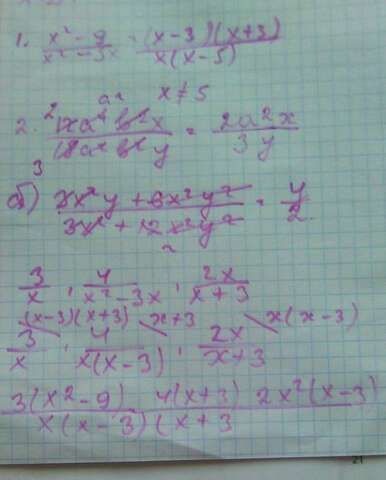 1. x² - 9 / x² - 5x = (x-3)(x+3) / x(x-5)
x ≠ 5
2. 12a⁴b²x / 18a²b²y = 2a²x / 3y
б) 3x²y + 6x²y² / 3x² + 12x²y² = y / 2
3/x , 4/x²-3x , 2x/x+3
3/x \(x-3)(x+3) , 4/x(x-3) \x+3 , 2x/x+3 \x(x-3)
3(x²-9) 4(x+3) 2x²(x-3) / x(x-3)(x+3
21